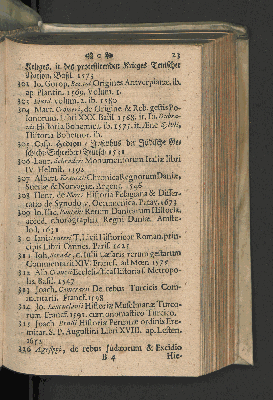 O 23
Krieges, it. des protestirenden Krieges Teutscher
Nation. Basil. 1573
301 Jo. Gorop. Becani Origines Antverpianæ. ib.
ap. Plantin. 1569. volum. 1.
303 volum. 2. ib. 1580
304 Mart. Cromeri, de Origine & Reb. gestis Po-
lonorum. Libri XXX. Basil. 1568. it. Jo. Dubra-
Historia Bohemica. ib. 1575. it. Æneæ Sylvii,
Historia Bohemica. ib.
305 Casp. Hedion Josephus der Jüdische Ge-
schicht-Schreiber Teutsch 1531
306 Laur. Schraderi Monumentorum Italiæ libri
IV. Helmst. 1592
307 Albert. Krantzii Chronica Regnorum Daniæ,
Sueciæ & Norvagiæ. Argent. 1546
308 Henr. de Historia Pelagiana & Disser-
tatio de Synodo V. Oecumenica. Patav. 1673
309 Jo. Isac. Pontani Rerum Danicarum Historia,
acced. chorographia Regni Daniæ. Amste-
lod. 1631
310 Jani T. Livii Historicor. Roman. prin-
cipis Libri Omnes. Paris. 1625
311 Joh. Sleidani, è soc. rerum gestarum
Commentarii XIV. Francf. ad Mœn. 1575
312 Alb. Crantzii Ecclesiastica Historia s. Metropo-
lis. Basil. 1547
313 Joach. Camerarii De rebus Turcicis Com-
mentarii. Francf. 1598
314 Jo. Leunclavii Historiæ Musulmanæ Turco-
rum. Francf. 1591. cum onomastico Turcico.
315 Joach. Historiæ Peruanæ ordinis Ere-
mitar. S. P. Augustini Libri XVIII. ap. Lesten.
1651
316 Ægesippi, de rebus Judæorum & Excidio
B 4 Hie-